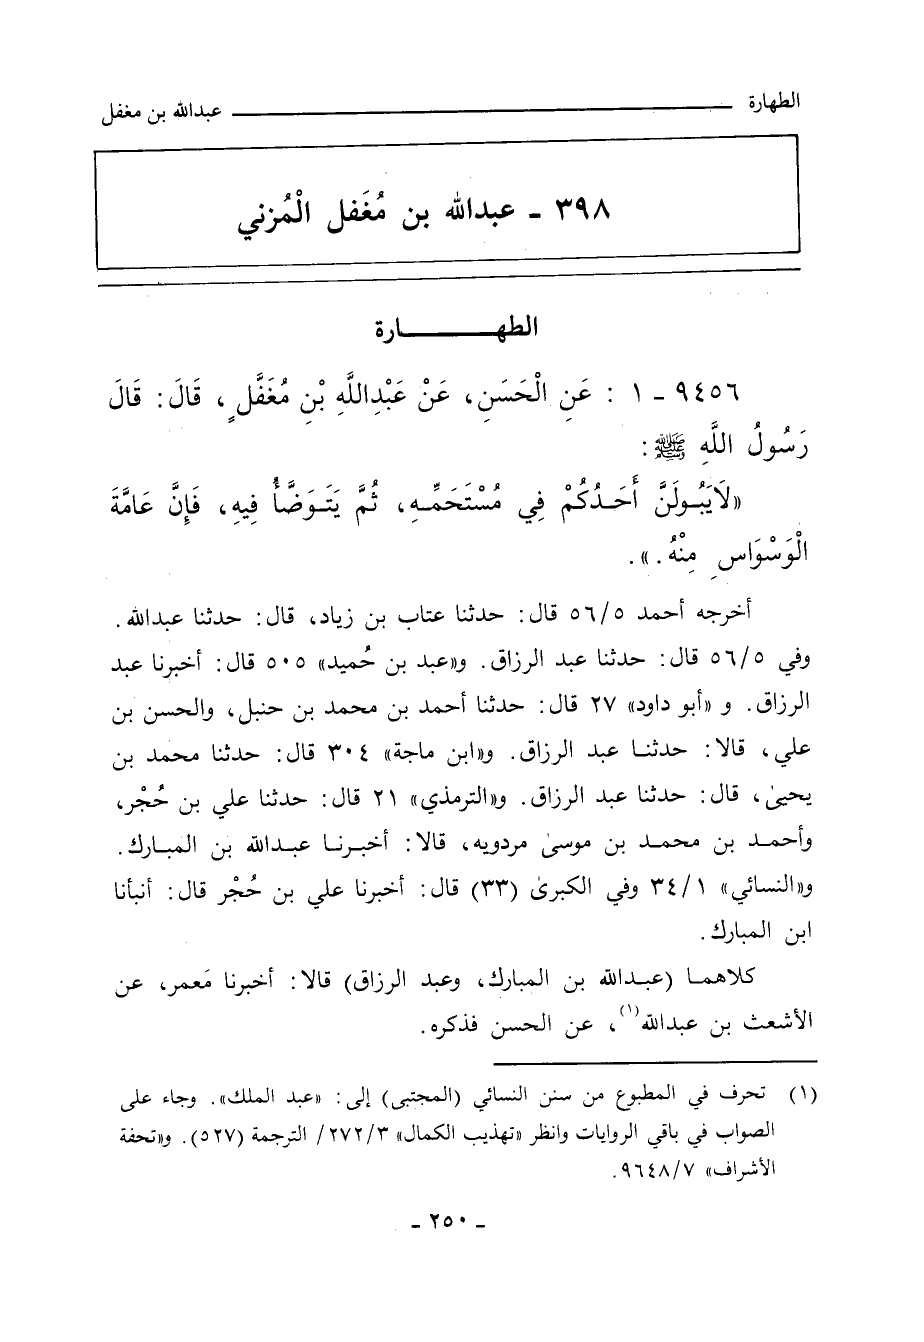 الطهارة عبدالله بن مغفل
٣٩٨ - عبدالله بن مُغَفل الْمُزني
الطهـــــــارة
٩٤٥٦ - ١ : عَنِ الْحَسَنِ، عَنْ عَبْدِاللَّهِ بْنِ مُغَفَّلٍ، قَالَ: قَالَ
رَسُولُ اللَّهِ ﷺ:
«لَايَبُـولَنَّ أَحَـدُكُمْ فِي مُسْتَحَمِّـهِ، ثُمَّ يَتَوَضَّأُ فِيهِ، فَإِنَّ عَامَّةَ
الْوَسْوَاسِ مِنْهُ.».
أخرجه أحمد ٥٦/٥ قال: حدثنا عتاب بن زياد، قال: حدثنا عبدالله.
وفي ٥٦/٥ قال: حدثنا عبد الرزاق. و«عبد بن حُميد» ٥٠٥ قال: أخبرنا عبد
الرزاق. و «أبو داود» ٢٧ قال: حدثنا أحمد بن محمد بن حنبل، والحسن بن
علي، قالا: حدثنـا عبد الرزاق. و«ابن ماجة» ٣٠٤ قال: حدثنا محمد بن
يحيىٰ، قال: حدثنا عبد الرزاق. و«الترمذي» ٢١ قال: حدثنا علي بن حُجْر،
وأحمـد بن محمـد بن موسىٰ مردويه، قالا: أخبـرنـا عبـدالله بن المبـارك.
و«النسائي» ٣٤/١ وفي الكبرىٰ (٣٣) قال: أخبرنا علي بن حُجْر قال: أنبأنا
ابن المبارك.
كلاهمـا (عبـدالله بن المبارك، وعبد الرزاق) قالا: أخبرنا مَعمر، عن
الأشعث بن عبدالله(١)، عن الحسن فذكره.
(١) تحرف في المطبوع من سنن النسائي (المجتبى) إلى: «عبد الملك». وجاء على
الصواب في باقي الروايات وانظر «تهذيب الكمال» ٢٧٢/٣/ الترجمة (٥٢٧). و«تحفة
الأشراف» ٩٦٤٨/٧.
- ٢٥٠ -